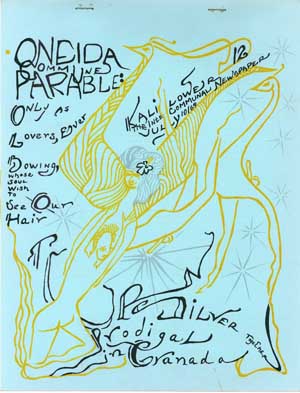 ONEIDA
COMMUNE
PARABLE:
Only As
Lovers, Ever
Bowing,
WHOSE
SOUL
WISH
TO
See Our
Hair
12
KALI FLOWER
THE INTER COMMUNAL NEWSPAPER
JULY 10/69
Silver
Prodigal
in Granada
Together